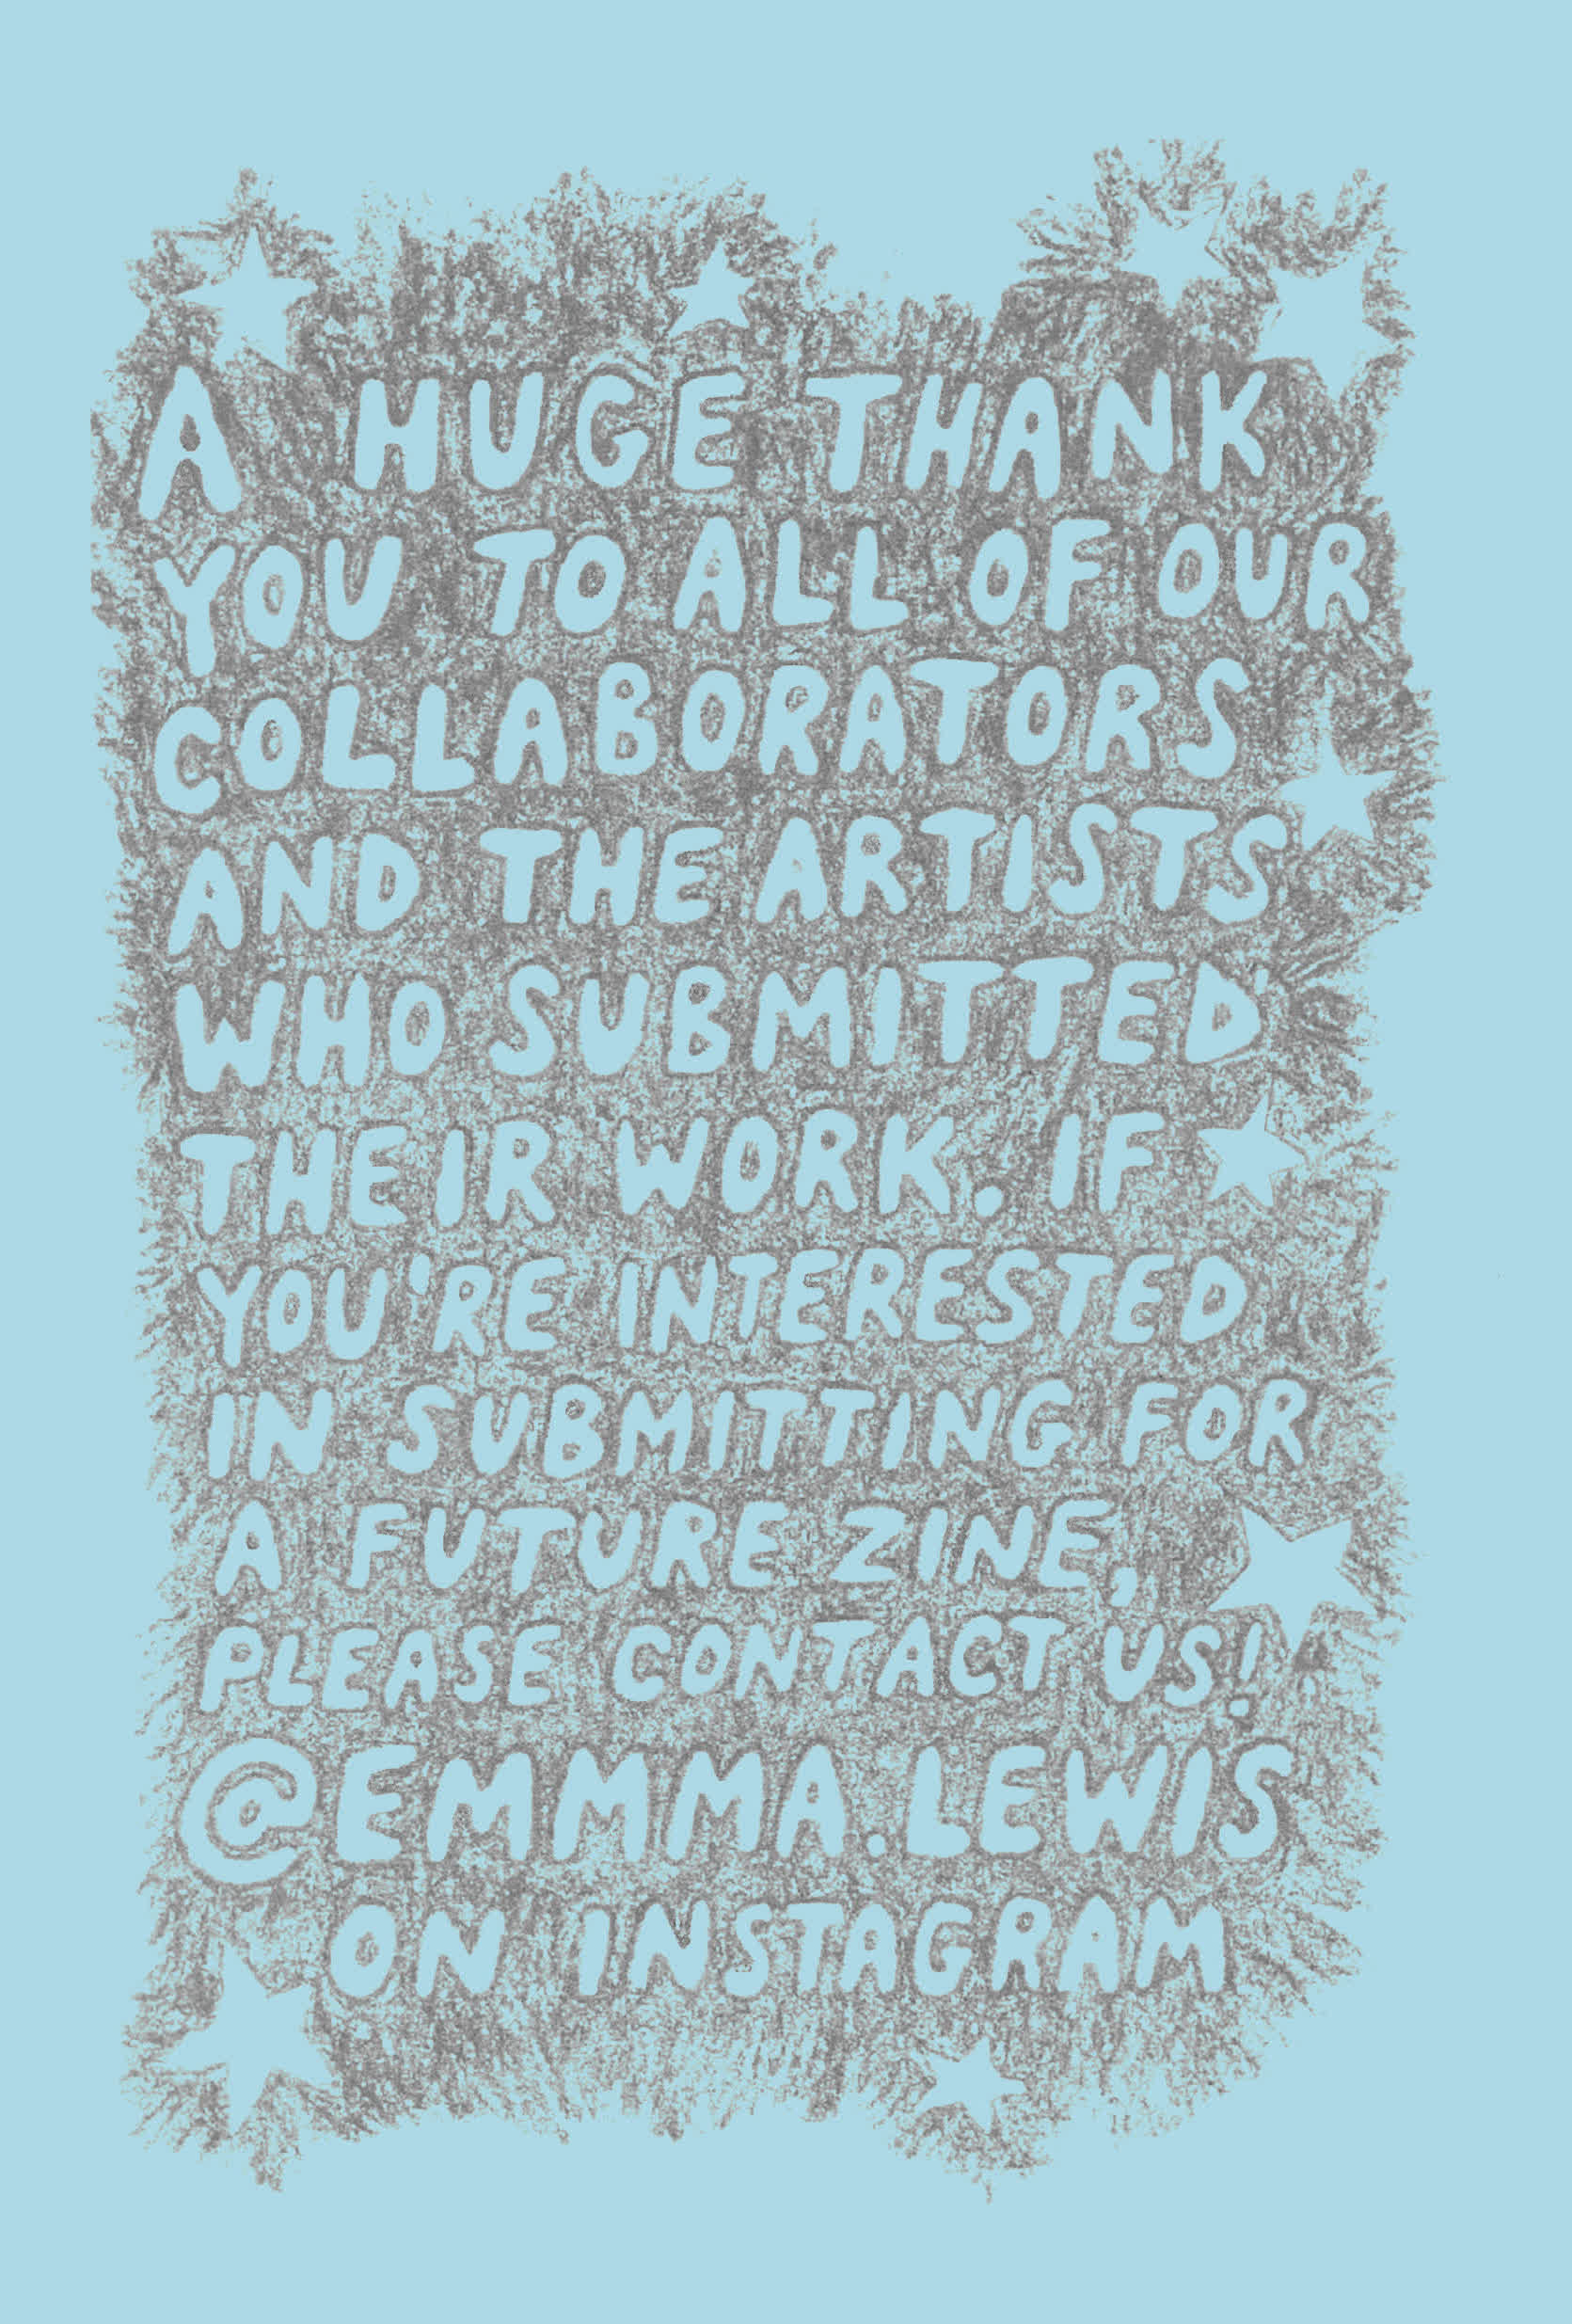 A HUGE THANK
YOU TO ALL OF OUR
COLLABORATORS
AND THE ARTISTS
WHO SUBMITTED
THEIR WORK. IF
YOU'RE INTERESTED
IN SUBMITTING FOR
A FUTURE ZINE,
PLEASE CONTACT US!
@EMMMA.LEWIS
ON INSTAGRAM